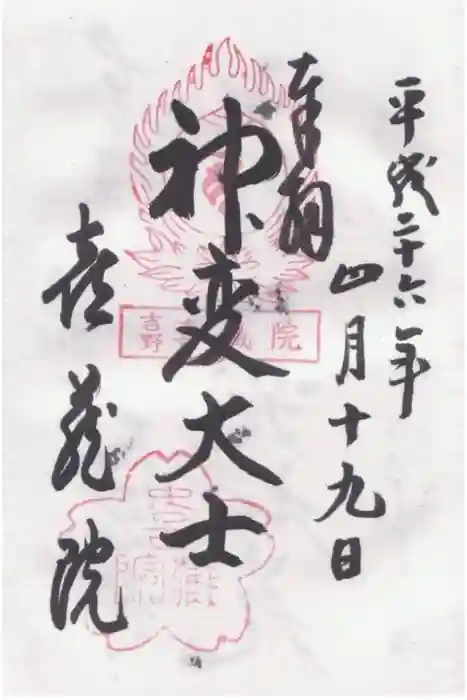 平成二十六年
四月十九日
奉拝
神変大士
喜蔵院
吉野喜蔵院